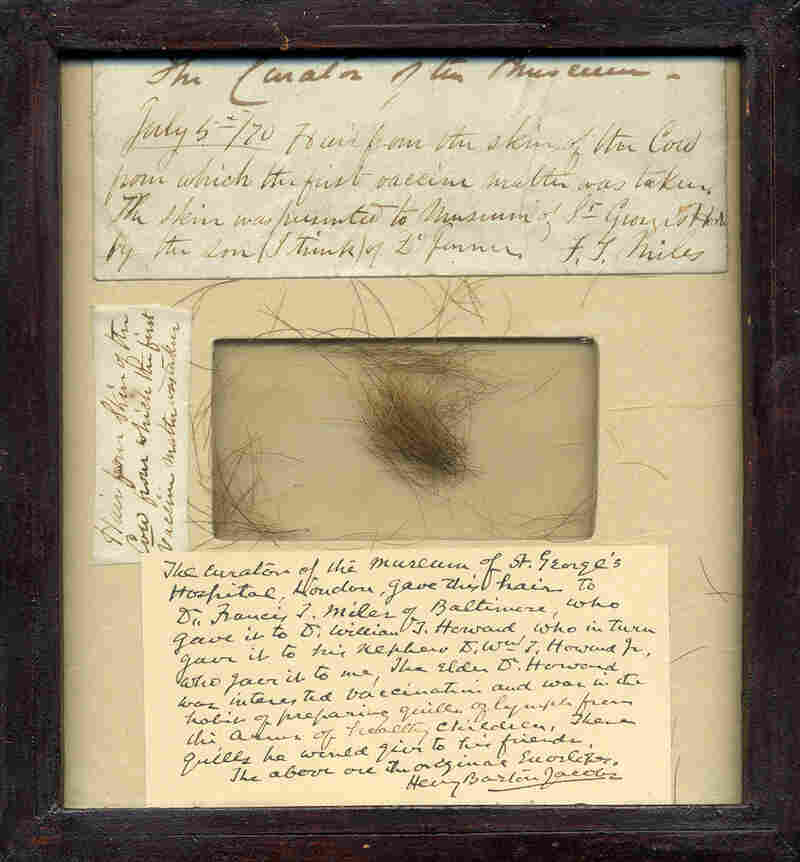 The Curator of the Museum -
July 5th/70 Hair from the skin of the Cow
from which the first vaccine matter was taken.
The skin was presented to Museum of St George's
by the son (I think) of Dr Jenner. F. T. Miles
Hair from Skin of the
Cow from which the first
Vaccine Matter was taken
The Curator of the Museum of St. George's
Hospital, London, gave this hair to
Dr. Francis T. Miles of Baltimore, who
gave it to Dr. William T. Howard who in turn
gave it to his nephew Dr. Wm T. Howard Jr.,
who gave it to me, The Elder Dr. Howard
was interested vaccination and was in the
habit of preparing quills of lymph from
the arms of healthy children. These
quills he would give to his friends.
The above are the original Envelopes.
Henry Barton Jacobs